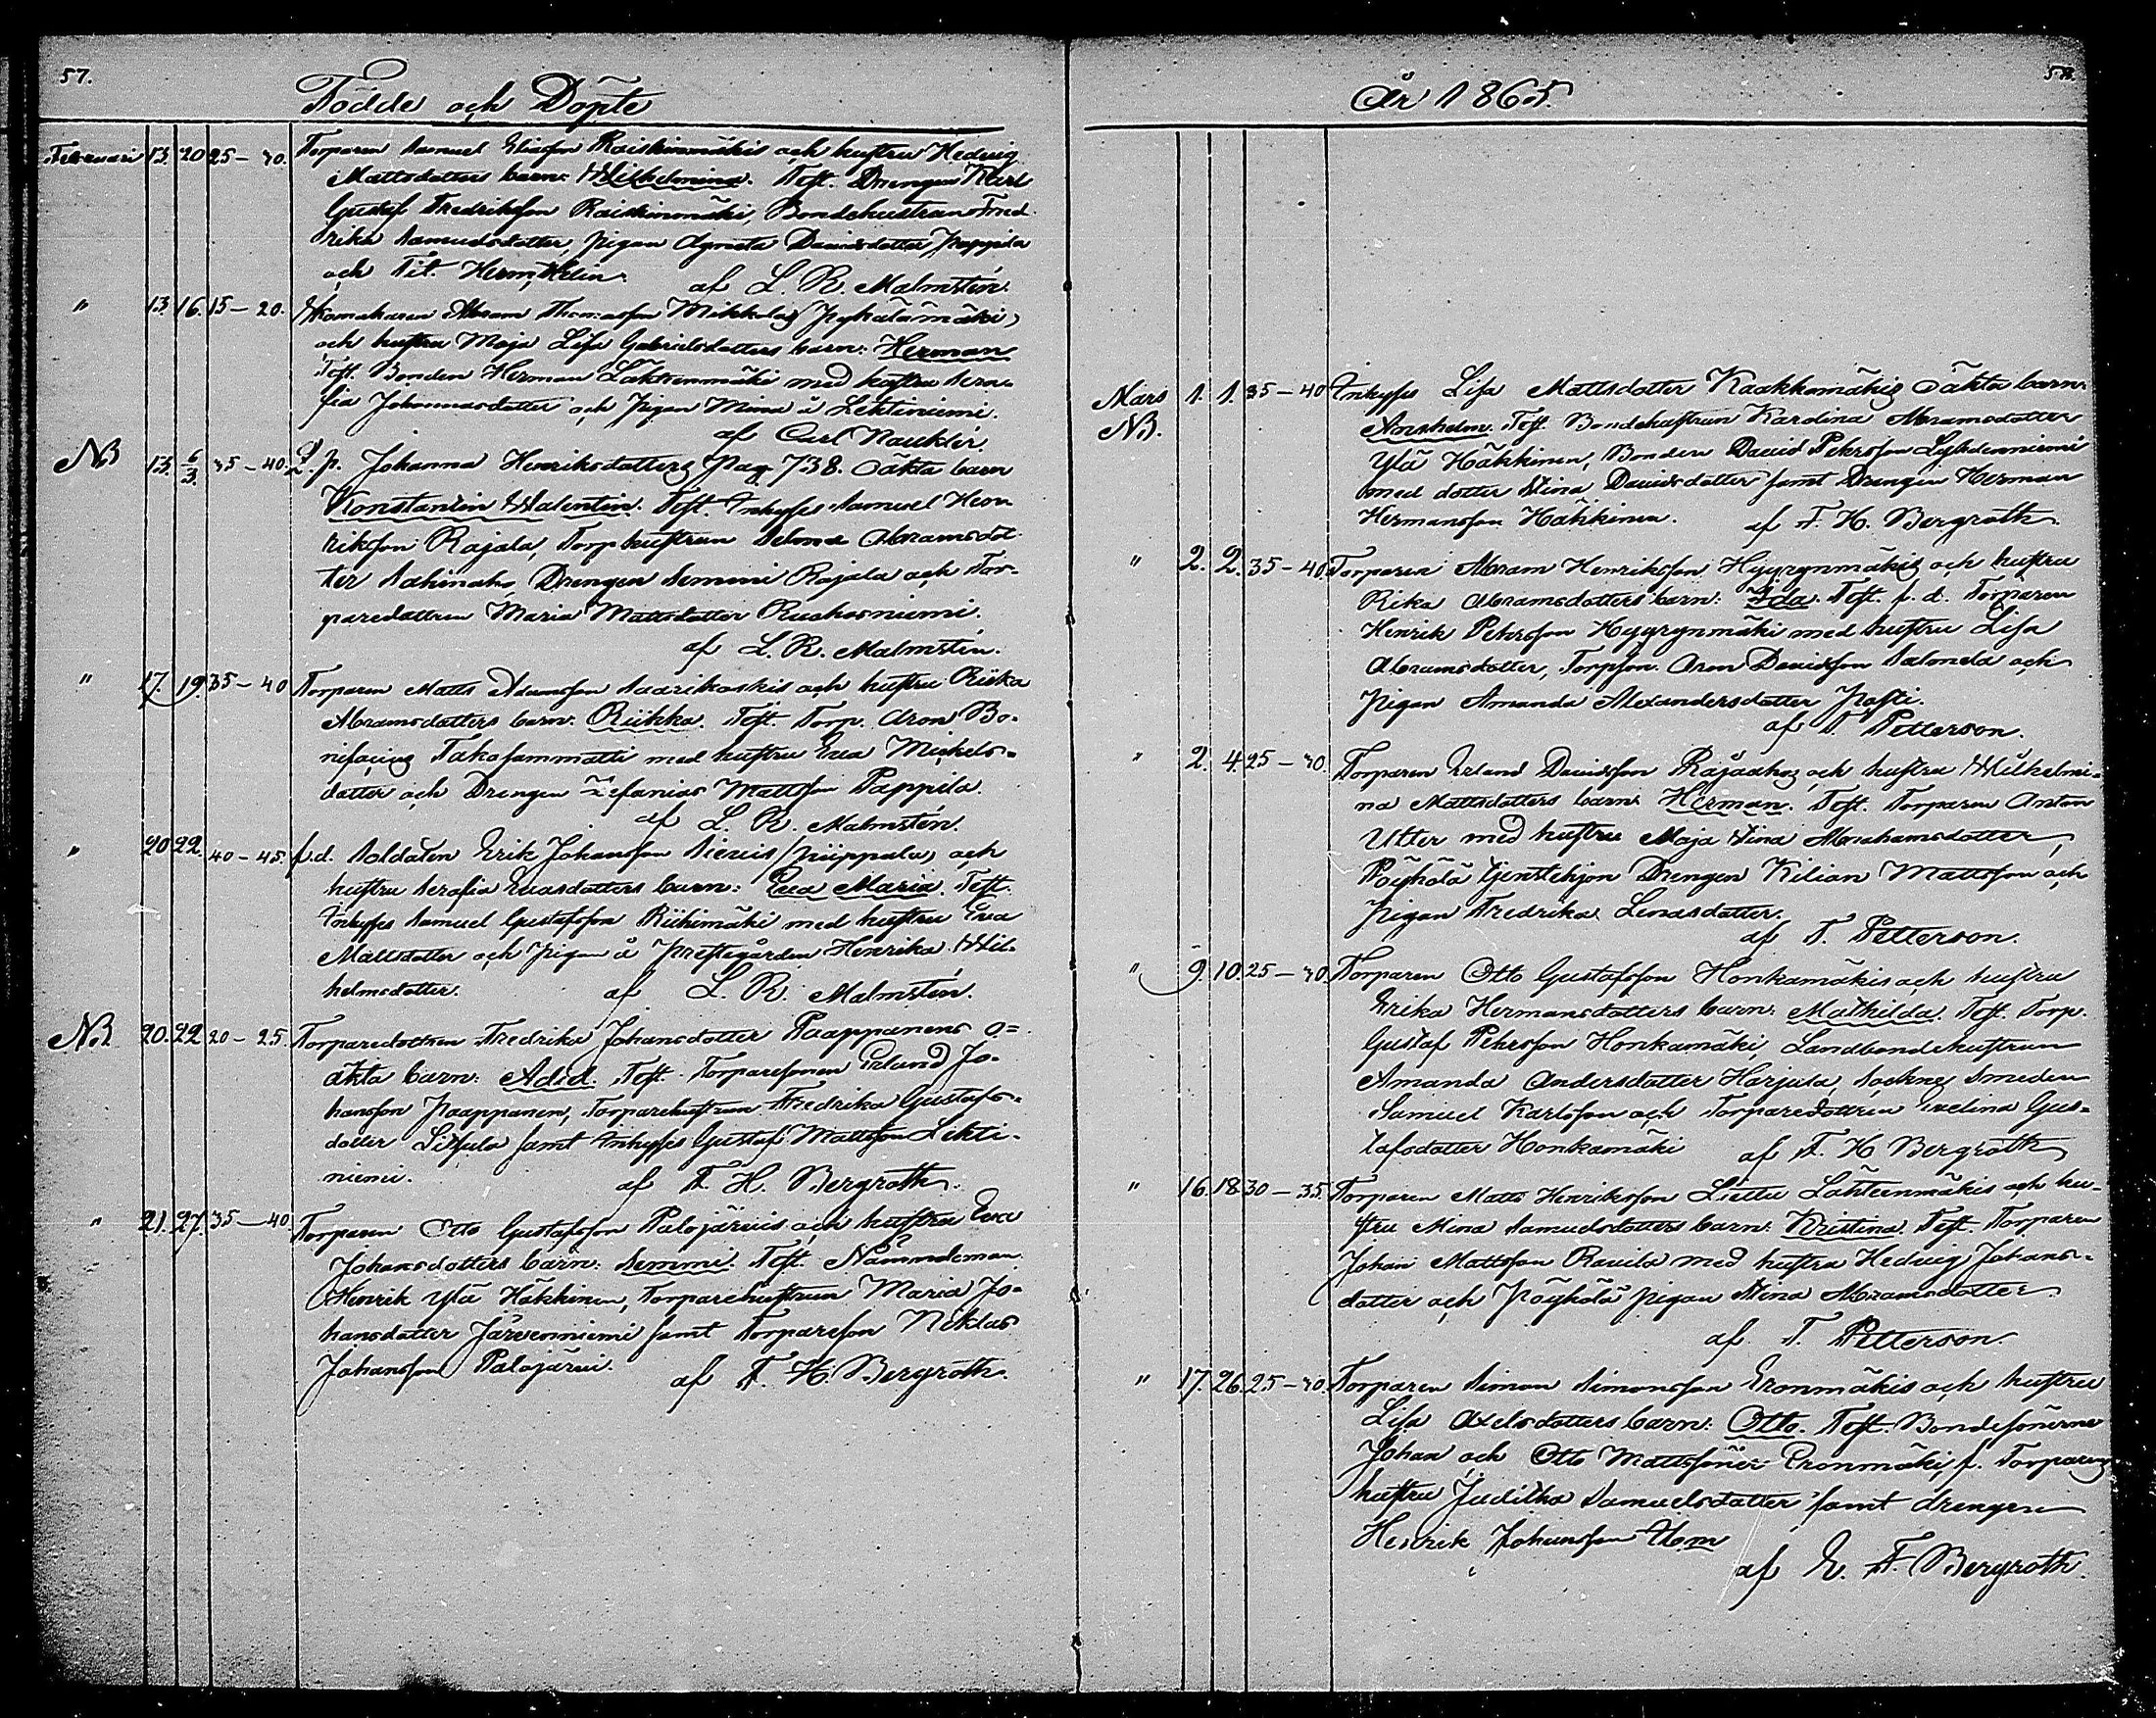 57.
Födde och Döpte
Februari 13. 20 25-30. Torparen Samuel Eliasson Raiskinmäkis och hustru Hedvig
Mattsdotters barn: Wilhelmina. Test. Drengen Karl
Gustaf Fredriksson Raiskinmäki, Bondehustrun Fred-
rika Samuelsdotter, pigan Agneta Davidsdotter Pappila
och Tit. Herm. Helin. af L. R. Malmstén.
" 13. 16. 15-20. Abram Thomasson Mikkolas
och hustru Maja Lisa Gabrielsdotters barn: Herman
Test. Bonden Herman Lähteenmäki med hustru Sera-
fia Johannasdotter och pigan Mina å Lehtiniemi.
af Carl Nauklér.
NB 13. 6/3. 35-40. Q. p. Johanna Henriksdotters pag. 738. oäkta barn
Konstantin Walentin. Test. Inhyses Samuel Hen-
riksson Rajala, Torp.hustrun Selma Abramsdot-
ter Sahinaho, Drengen Semmi Rajala och Tor-
paredottren Maria Mattsdotter Ruskoniemi.
af L. R. Malmstén.
" 17. 19. 35-40 Torparen Matts Adamsson Saarikoskis och hustru Riska
Abramsdotters barn: Riikka. Test. Torp. Aron Bo-
nifacius Takasammatti med hustru Eva Michels-
dotter och Drengen Zefanias Mattsson Pappila.
af L. R. Malmstén.
" 20 22. 40-45. f.d. Soldaten Erik Johansson Sievis (Piippala) och
hustru Serafia Evasdotters barn: Eva Maria. Test.
Inhyses Samuel Gustafsson Riihimäki med hustru Eva
Mattsdotter och pigan å Prestgården Henrika Wil-
helmsdotter. af L. R. Malmstén.
NB 20. 22 20-25. Torparedottren Fredrika Johansdotter Paappanens o=
äkta barn: Adid. Test. Torparesonen Erland Jo-
hansson Paappanen, Torparehustrun Fredrika Gustafs-
dotter samt Inhyses Gustaf Mattsson Lehti-
niemi. af F. H. Bergroth.
" 21. 27. 35-40. Torparen Otto Gustafsson Palojärvis och hustru Eva
Johansdotters barn: Semmi. Test. Nämndeman
Henrik Ylä Häkkinen, Torparehustrun Maria Jo-
hansdotter Järvenniemi samt Torpareson Niklas
Johansson Palojärvi. af F. H. Bergroth.
58.
År 1865.
Mars 1. 1. 35-40 Inhyses Lisa Mattsdotter Kaakkomäkis oäkta barn:
NB. Anshelm. Test. Bondehustrun Karolina Abramsdotter
Ylä Häkkinen, Bonden David Pehrsson
med dotter Stina Davidsdotter samt Drengen Herman
Hermansson Häkkinen. af F. H. Bergroth.
" 2. 2. 35-40 Torparen Abram Henriksson Hyyrynmäkis och hustru
Rika Abramsdotters barn: Ida. Test. f. d. Torparen
Henrik Pehrsson Hyyrynmäki med hustru Lisa
Abramsdotter, Torpson. Aron Davidsson Salonda och
Pigan Amanda Alexandersdotter Pasti.
af T. Petterson.
" 2. 4. 25-30. Torparen Erland Davidsson Rajaahos och hustru Wilhelmi-
na Mattsdotters barn: Herman. Test. Torparen Anton
Utter med hustru Maja Stina Abrahamsdotter,
Pöyhölä tjenstehjon Drengen Kilian Mattsson och
Pigan Fredrika Lenasdotter.
af T. Petterson.
" 9. 10. 25-30. Torparen Otto Gustafsson Honkamäkis och hustru
Erika Hermansdotters barn: Mathilda. Test. Torp.
Gustaf Pehrsson Honkamäki, Landbondehustrun
Amanda Andersdotter Harjula, Sockne Smeden
Samuel Karlsson och Torparedottren Evelina Gus-
tafsdotter Honkamäki af F. H. Bergroth
" 16. 18. 30-35. Torparen Matts Henriksson Liettu Lähteenmäkis och hu-
stru Mina Samuelsdotters barn: Kristina. Test. Torparen
Johan Mattsson Ravila med hustru Hedvig Johans-
dotter och Pöyhölä pigan Stina Abramsdotter
af T. Petterson.
" 17. 26. 25-30. Torparen Simon Simonsson Eronmäkis och hustru
Lisa Axelsdotters barn: Otto. Test. Bondesönerne
Johan och Otto Mattssöner Eronmäki, f. Torparens
hustru Juditha Samuelsdotter samt drengen
Henrik Johansson
af E. F. Bergroth.